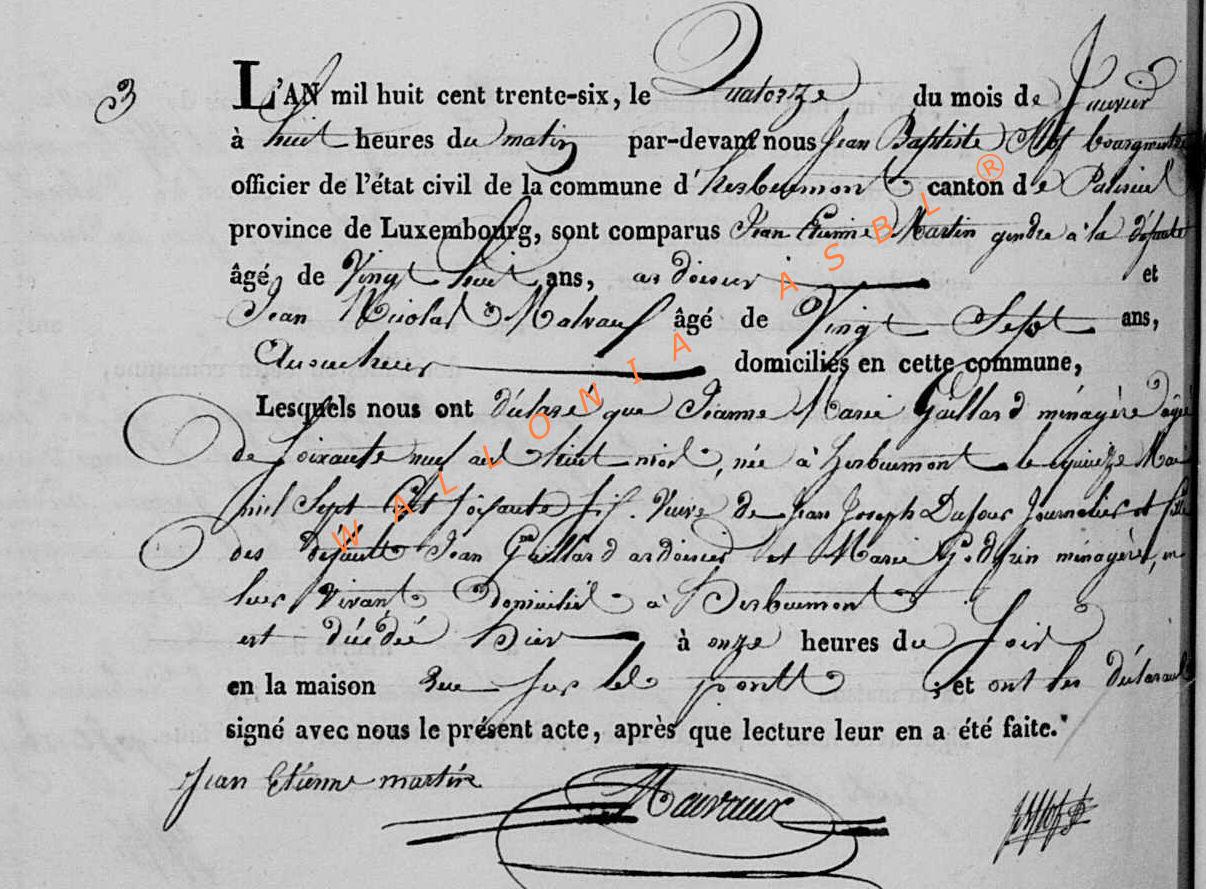 3
L'AN mil huit cent trente-six, le Quatorze du mois de Janvier
à huit heures du matin par-devant nous Jean Baptiste bourgmestre
officier de l'état civil de la commune d'herbeumont canton de Paliseul
province de Luxembourg, sont comparus Jean Etienne Martin gendre à la défunte
âgé de Vingt huit ans, ardoisier et
Jean Nicolas âgé de Vingt Sept ans,
domiciliés en cette commune,
Lesquels nous ont déclaré que Jeanne Marie Gaillard ménagère âgée
de soixante neuf ans huit mois, née à herbeumont le quinze Mai
mil Sept Cent soixante six. Veuve de Jean Joseph Dufour Journalier et fille
des défunts Jean Gaillard ardoisier et Marie Godfrin ménagère, en
leur Vivant domiciliés à herbeumont
est décédée hier à onze heures du Soir
en la maison Rue sur les pontt ; et ont les déclarants
signé avec nous le présent acte, après que lecture leur en a été faite.
Jean Etienne martin
Maivaux
WALLONIA ASBL ®